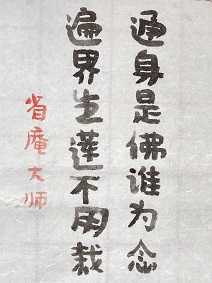 通身是佛谁为念
遍界生莲不用栽
省庵大师